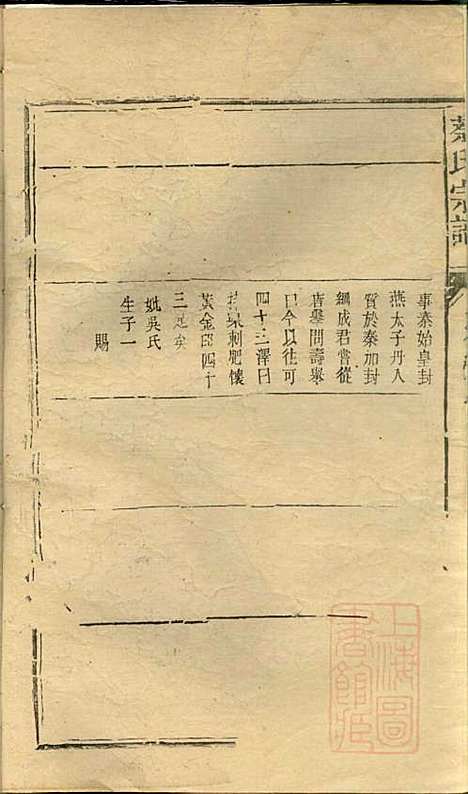 蔡氏宗譜
事秦始皇封
燕太子丹入
質於秦加封
綱成君嘗從
唐舉問壽舉
曰今以往可
四十三澤曰
持梁刺肥懷
黃金印四十
三足矣
妣吳氏
生子一
賜
上海圖
書館藏